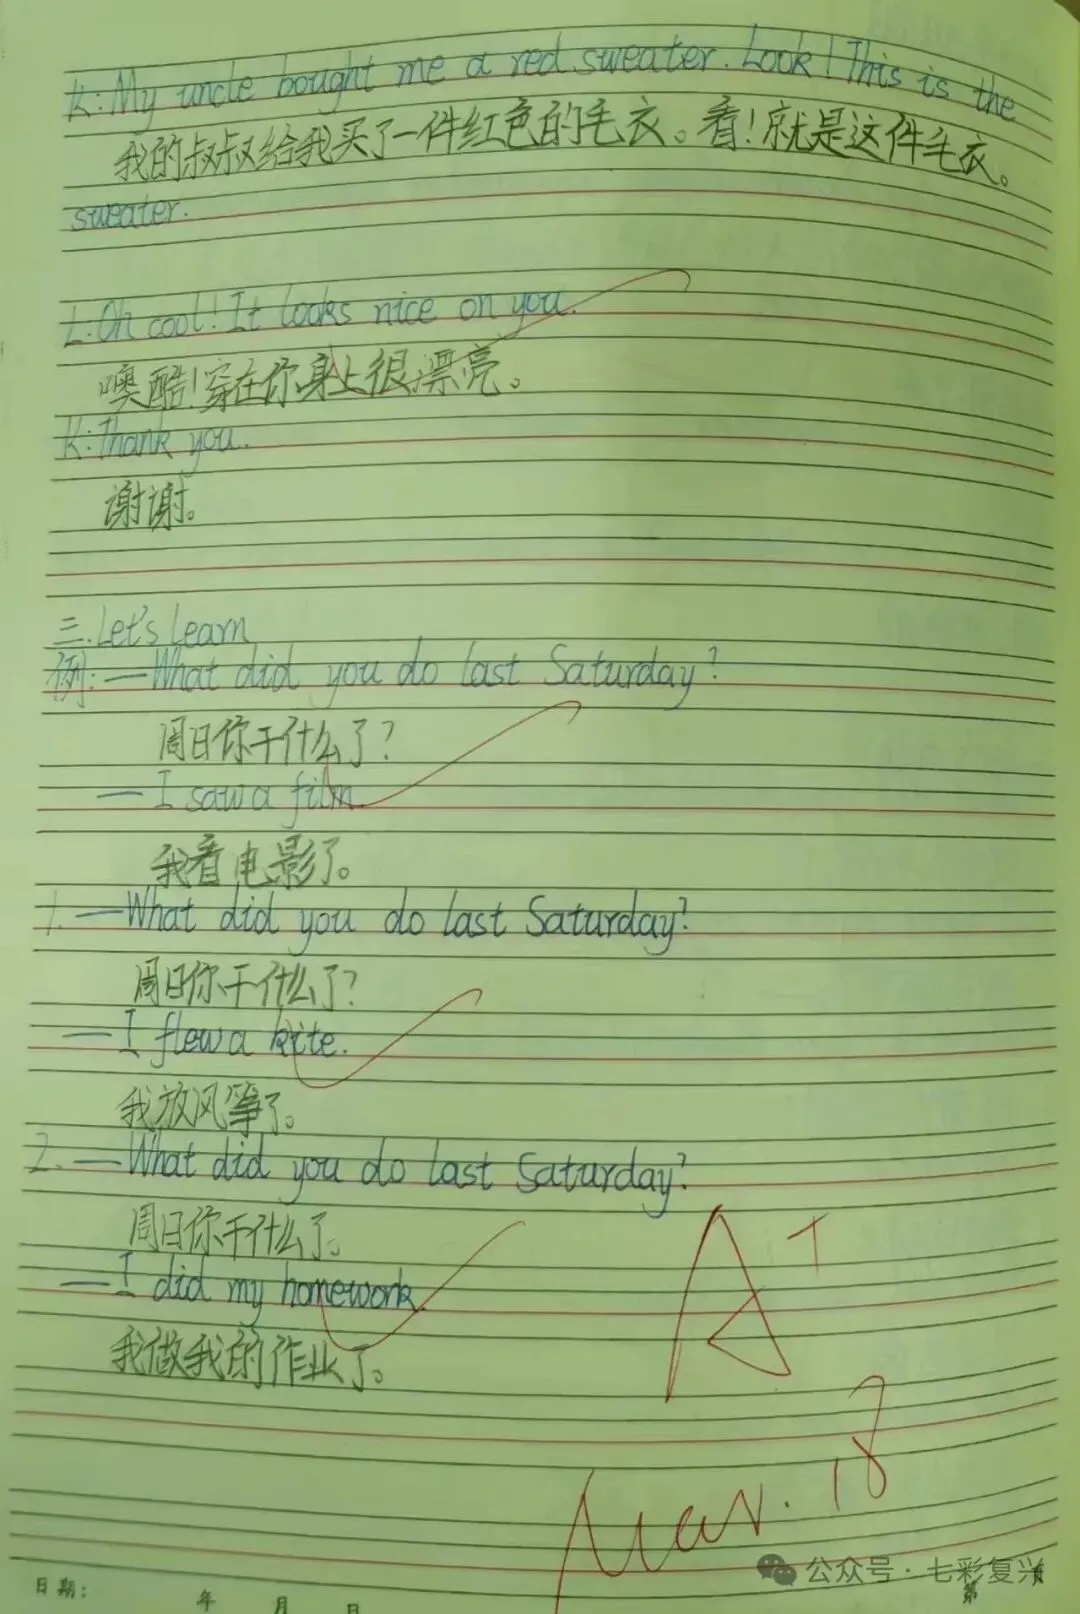 K: My uncle bought me a red sweater. Look! This is the
我的叔叔给我买了一件红色的毛衣。看!就是这件毛衣。
sweater.
L: Oh cool! It looks nice on you.
噢酷!穿在你身上很漂亮。
K: Thank you.
谢谢。
三.Let's Learn
例:—What did you do last Saturday?
周日你干什么了?
—I saw a film
我看电影了。
1.—What did you do last Saturday?
周日你干什么了?
—I flew a kite.
我放风筝了。
2.—What did you do last Saturday?
周日你干什么了。
—I did my homework.
我做我的作业了。
A+
Mar. 18
公众号·七彩复兴
日期: 年 月 日 第